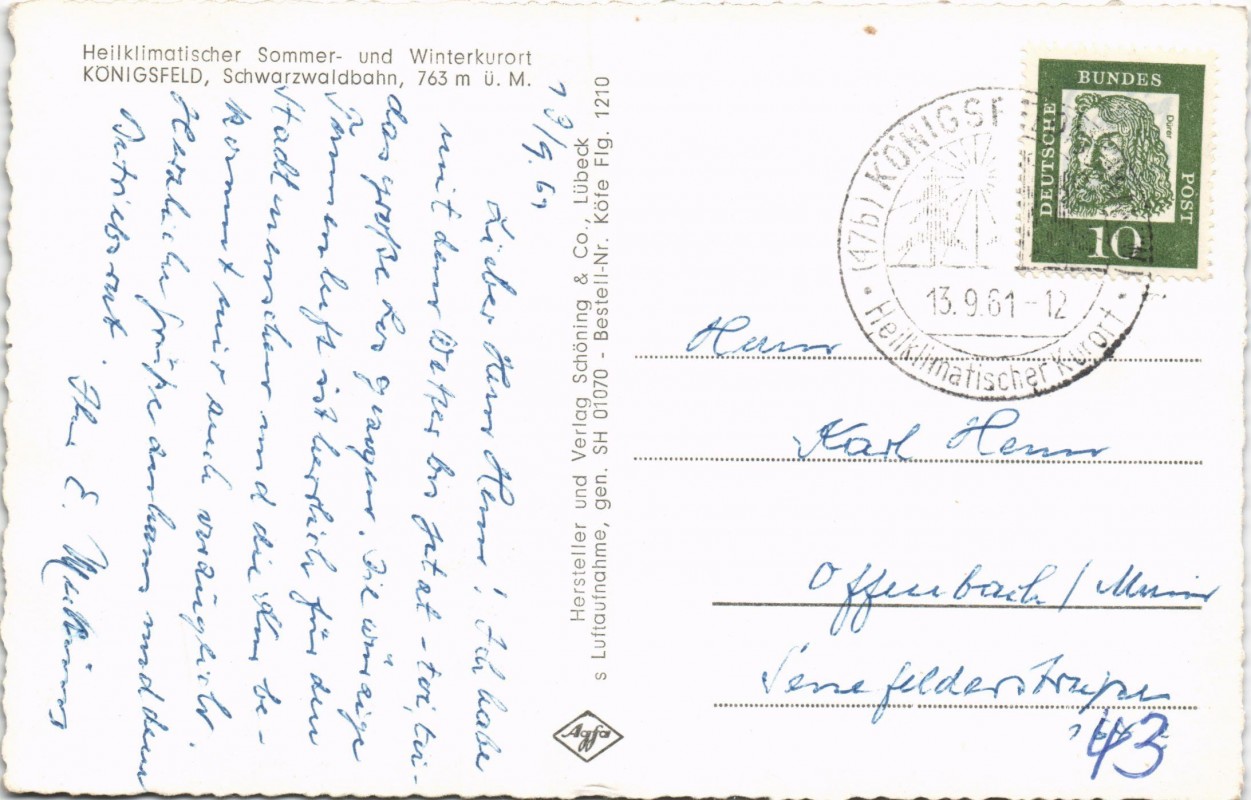 Heilklimatischer Sommer- und Winterkurort
KÖNIGSFELD, Schwarzwaldbahn, 763 m ü. M.
13/9. 61
Lieber Herr Henn! Ich habe
mit dem Wetter bis jetzt
das große Los gezogen. Die würzige
Tannenluft ist herrlich für den
Stadtmenschen und die Kur be-
kommt mir auch vorzüglich.
Herzliche Grüße an hans und den
Betriebsrat.
Ihr E.
Hersteller und Verlag Schöning & Co., Lübeck
s Luftaufnahme, gen. SH 01070 - Bestell-Nr. Köfe Flg. 1210
Agfa
DEUTSCHE
BUNDES
POST
Dürer
10
(17b) KÖNIGSF
13.9.61-12
Heilklimatischer Kurort
Herrn
Karl Henn
Offenbach/Main
Senefelderstraße
43